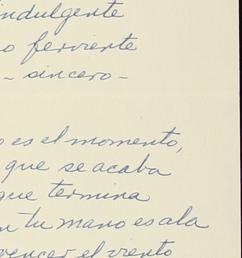 indulgente
o ferviente
- sincero -
o es el momento,
que se acaba
que termina
n tu mano es ala
vencer el viento